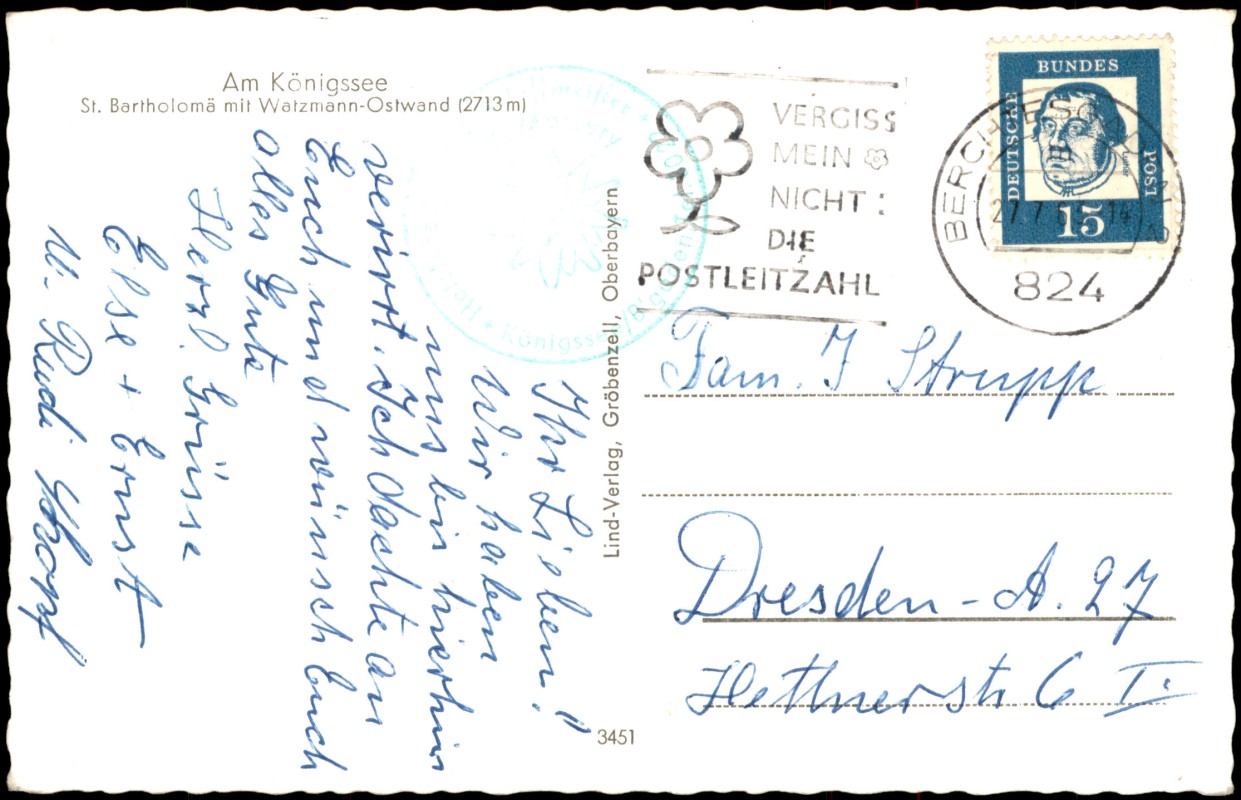 Am Königssee
St. Bartholomä mit Watzmann-Ostwand (2713 m)
Ihr Lieben!
Wir haben
uns bis hierhin
verirrt. Ich dachte an
Euch und wünsch Euch
alles Gute
Herzl. Grüsse
Else + Ernst
u. Rudi
Lind-Verlag, Gröbenzell, Oberbayern
3451
Königssee
VERGISS
MEIN
NICHT:
DIE
POSTLEITZAHL
BERCHTESGADEN
27.7.
824
DEUTSCHE
BUNDES
POST
Luther
15
Fam. J Strupp
Dresden - A. 27
Hettnerstr 6 I.